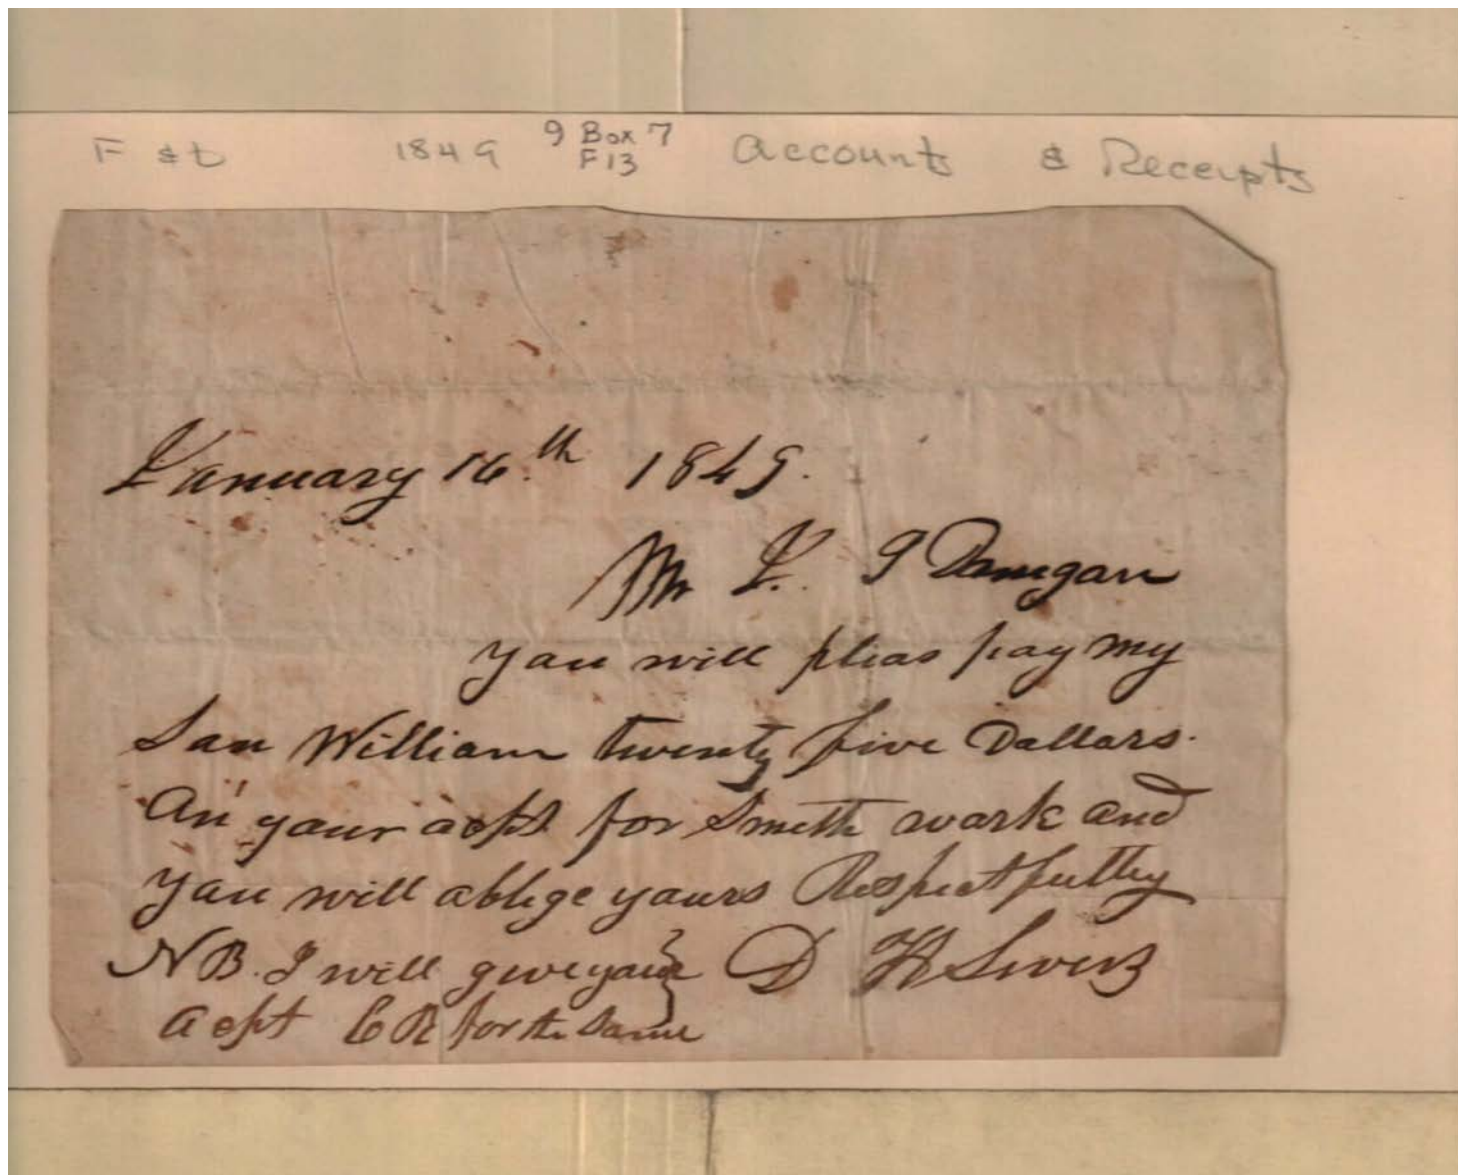 F & 1849 9 Box 7 Accounts & Receipts
F13
January 16th 1849.
Mr J.
You will pleas pay my
Son William twenty five Dollars.
On your acpt for Smith work and
You will oblige yours Respectfulley
NB. I will give your D H
acpt CR for the Same